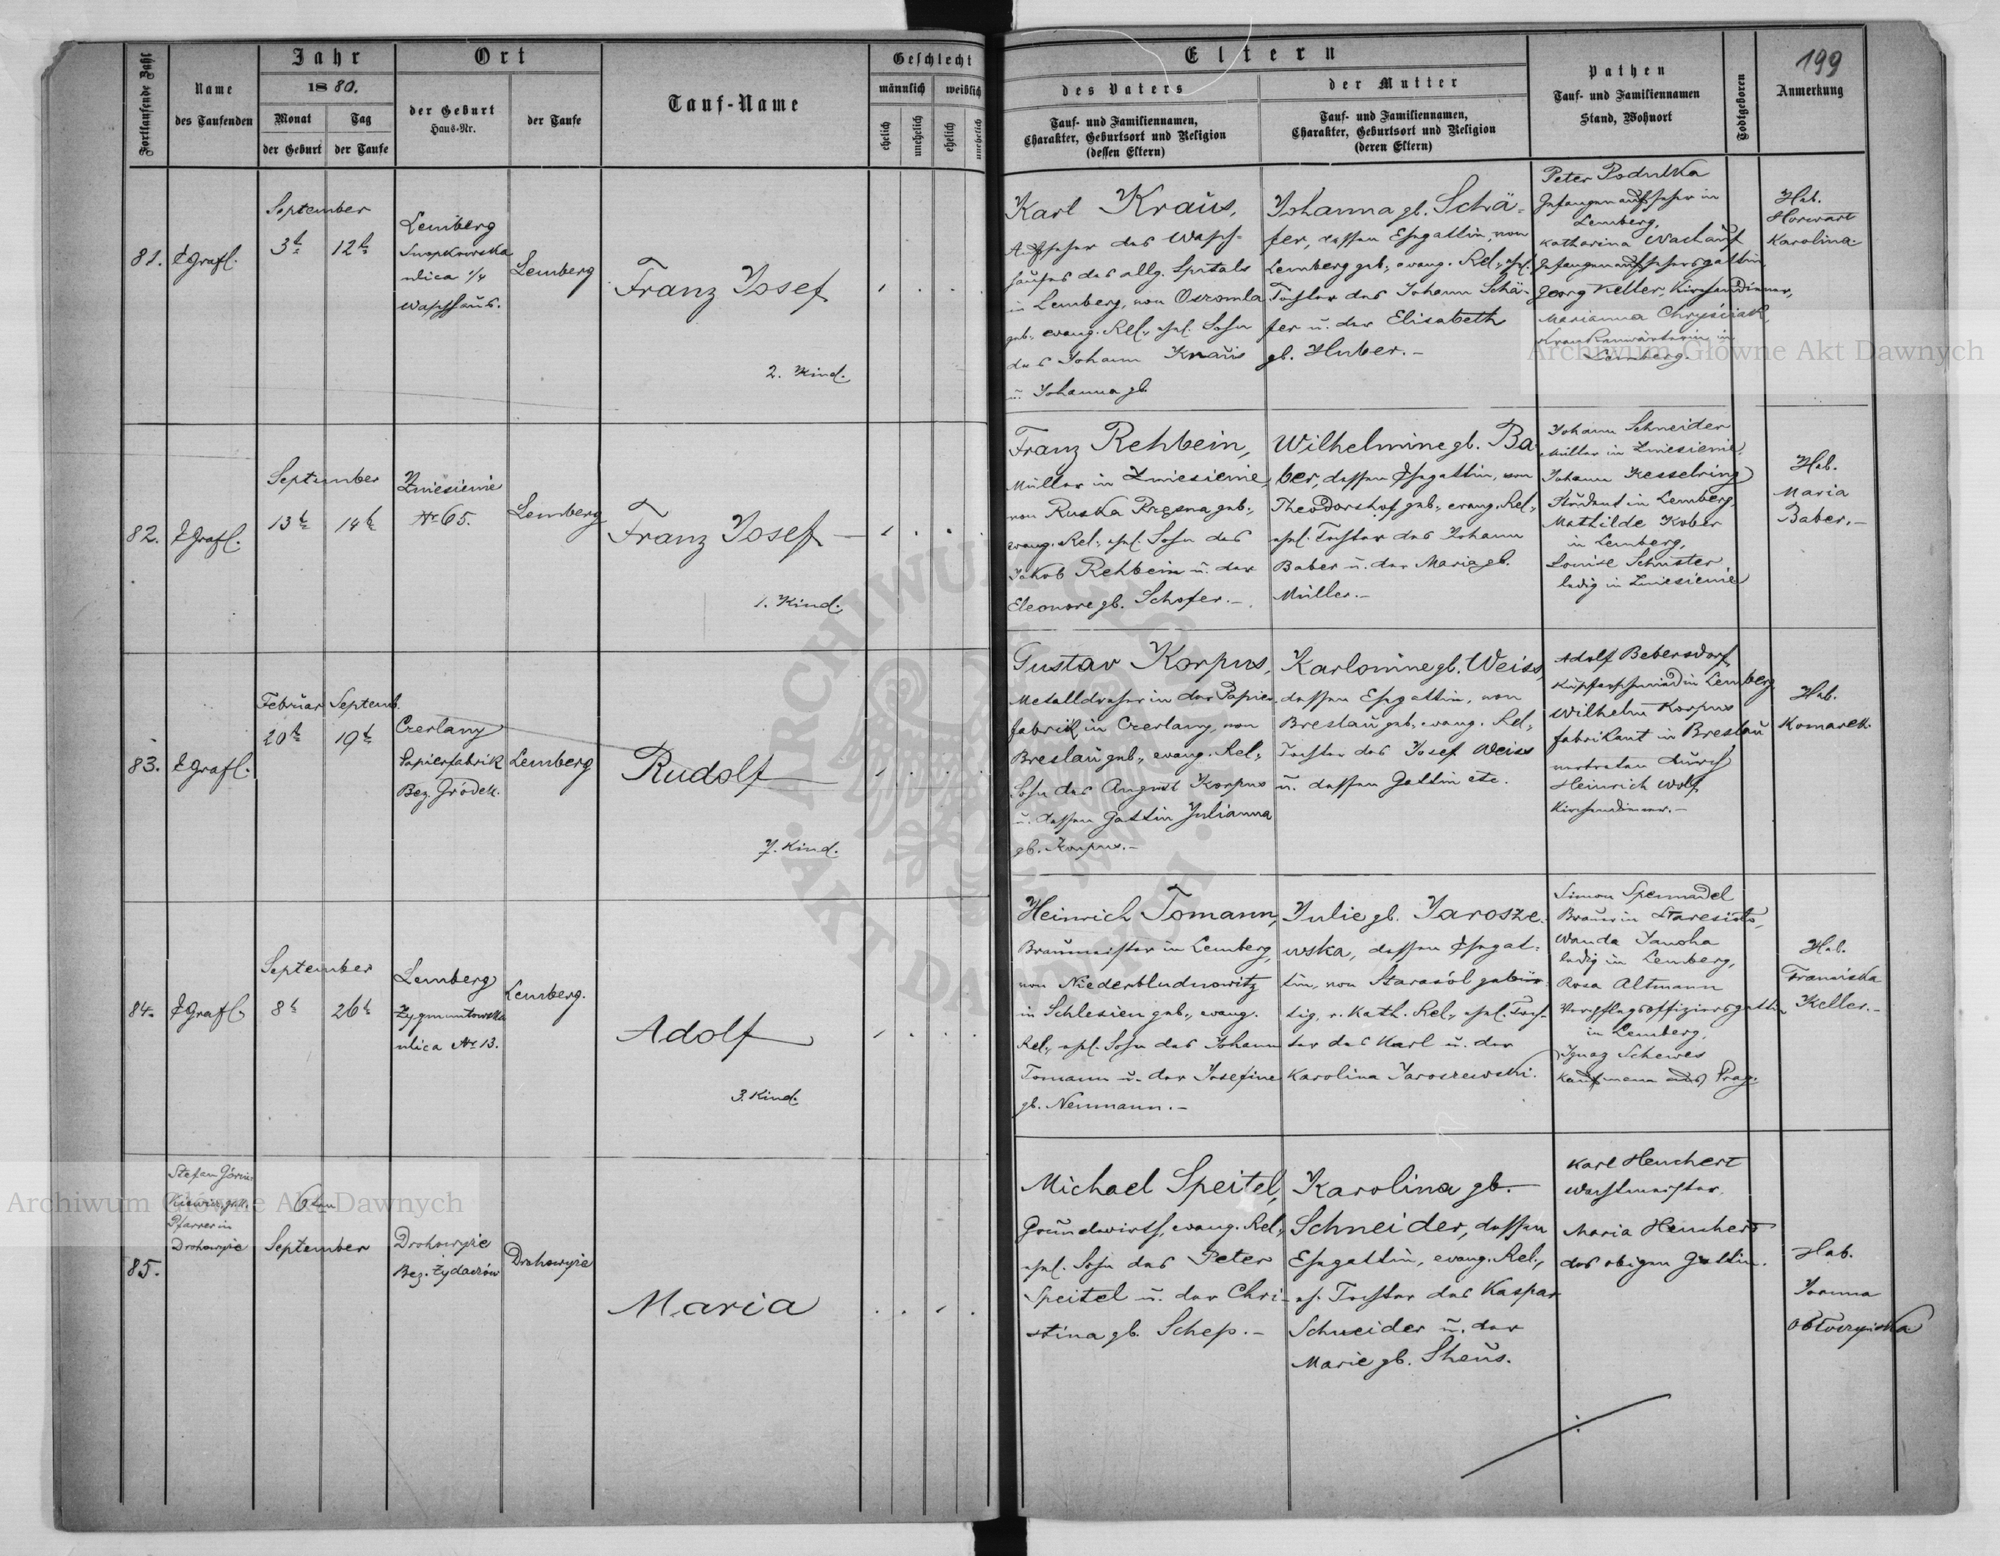 199
Fortlaufende Zahl
Name
des Taufenden
Jahr
1880.
Monat
der Geburt
Tag
der Taufe
Ort
der Geburt
Haus-Nr.
der Taufe
Tauf-Name
Geschlecht
männlich
weiblich
ehelich
unehelich
ehelich
unehelich
Eltern
des Vaters
Tauf- und Familiennamen,
Charakter, Geburtsort und Religion
(dessen Eltern)
der Mutter
Tauf- und Familiennamen,
Charakter, Geburtsort und Religion
(deren Eltern)
Pathen
Tauf- und Familiennamen
Stand, Wohnort
Todtgeboren
Anmerkung
81.
September
3t
12t
Lemberg
ulica 1/4
Waschhaus.
Lemberg
Franz Josef
2. Kind.
Karl Kraus,
Aufseher des Wasch-
hauses des allg. Spitals
in Lemberg, von
geb., evang. Rel., ehel. Sohn
des Johann Kraus
u. Johanna gb.
Johanna gb. Schä-
fer, dessen Ehegattin, von
Lemberg geb., evang. Rel., ehel.
Tochter des Johann Schä-
fer u. der Elisabeth
gb. Huber.-
Peter Podulka
Gefangenaufseher in
Lemberg,
Katharina Wachauf
Gefangenaufsehersgattin,
Georg Keller, Kirchendiener,
Marianna
in
Lemberg.
Heb.
Horwart
Karolina.
82.
September
13t
14t
Zniesienie
Nr 65.
Lemberg
Franz Josef
1. Kind.
Franz Rehbein,
Müller in Zniesienie,
von Ruska geb.,
evang. Rel., ehel. Sohn des
Jakob Rehbein u. der
Eleonore gb. Schofer.-
Wilhelmine gb. Ba-
ber, dessen Ehegattin, von
Theodorshof geb., evang. Rel.,
ehel. Tochter des Johann
Baber u. der Maria gb.
Müller.-
Johann Schneider
Müller in Zniesienie,
Johann Kesselring
Student in Lemberg,
Mathilde Kober
in Lemberg,
Louise Schuster
ledig in Zniesienie
Heb.
Maria
Baber.-
83.
Februar
Septemb.
20t
19t
Czerlany
Papierfabrik
Bez. Gródek.
Lemberg
Rudolf
7. Kind.
Gustav Korpus,
Metalldreher in der Papier-
fabrik in Czerlany, von
Breslau geb., evang. Rel.,
Sohn des August Korpus
u. dessen Gattin Julianna
gb. Korpus.-
Karoline gb. Weiss,
dessen Ehegattin, von
Breslau geb., evang. Rel.,
Tochter des Josef Weiss
u. dessen Gattin etc.
Adolf Bebersdorf
Kupferschmied in Lemberg
Wilhelm Korpus
Fabrikant in Breslau
vertreten durch
Heinrich Wolf
Kirchendiener.-
Heb.
Komarek.
84.
September
8t
26t
Lemberg
Zygmuntowska
ulica Nr 13.
Lemberg.
Adolf
3. Kind.
Heinrich Tomann,
Braumeister in Lemberg,
von Niederbludnowitz
in Schlesien geb., evang.
Rel., ehel. Sohn des Johann
Tomann u. der Josefine
gb. Neumann.-
Julie gb. Jarosze-
wska, dessen Ehegat-
tin, von Starasól gebür-
tig, r. kath. Rel., ehel. Toch-
ter des Karl u. der
Karolina Jaroszewski.
Simon Spennadel
Brauer in Staresioło,
Wanda Janoha
ledig in Lemberg,
Rosa Altmann
Verpflegsoffiziersgattin
in Lemberg,
Ignaz Schewes
Kaufmann aus Prag.
Heb.
Franziska
Keller.-
85.
Stefan
Pfarrer in
Drohowyże
6ten
September
Drohowyże
Bez. Żydaczów
Drohowyże
Maria
Michael Speitel,
Grundwirth, evang. Rel.,
ehel. Sohn des Peter
Speitel u. der Chri-
stina gb. Schep.-
Karolina gb.
Schneider, dessen
Ehegattin, evang. Rel.,
eh. Tochter des Kaspar
Schneider u. der
Marie gb. Sheus.
Karl Henchert
Maria Henchert
des obigen Gattin.
Heb.
Joanna
Obłoczyńska
Archiwum Główne Akt Dawnych
Archiwum Główne Akt Dawnych
ARCHIWUM
AKT DAWNYCH